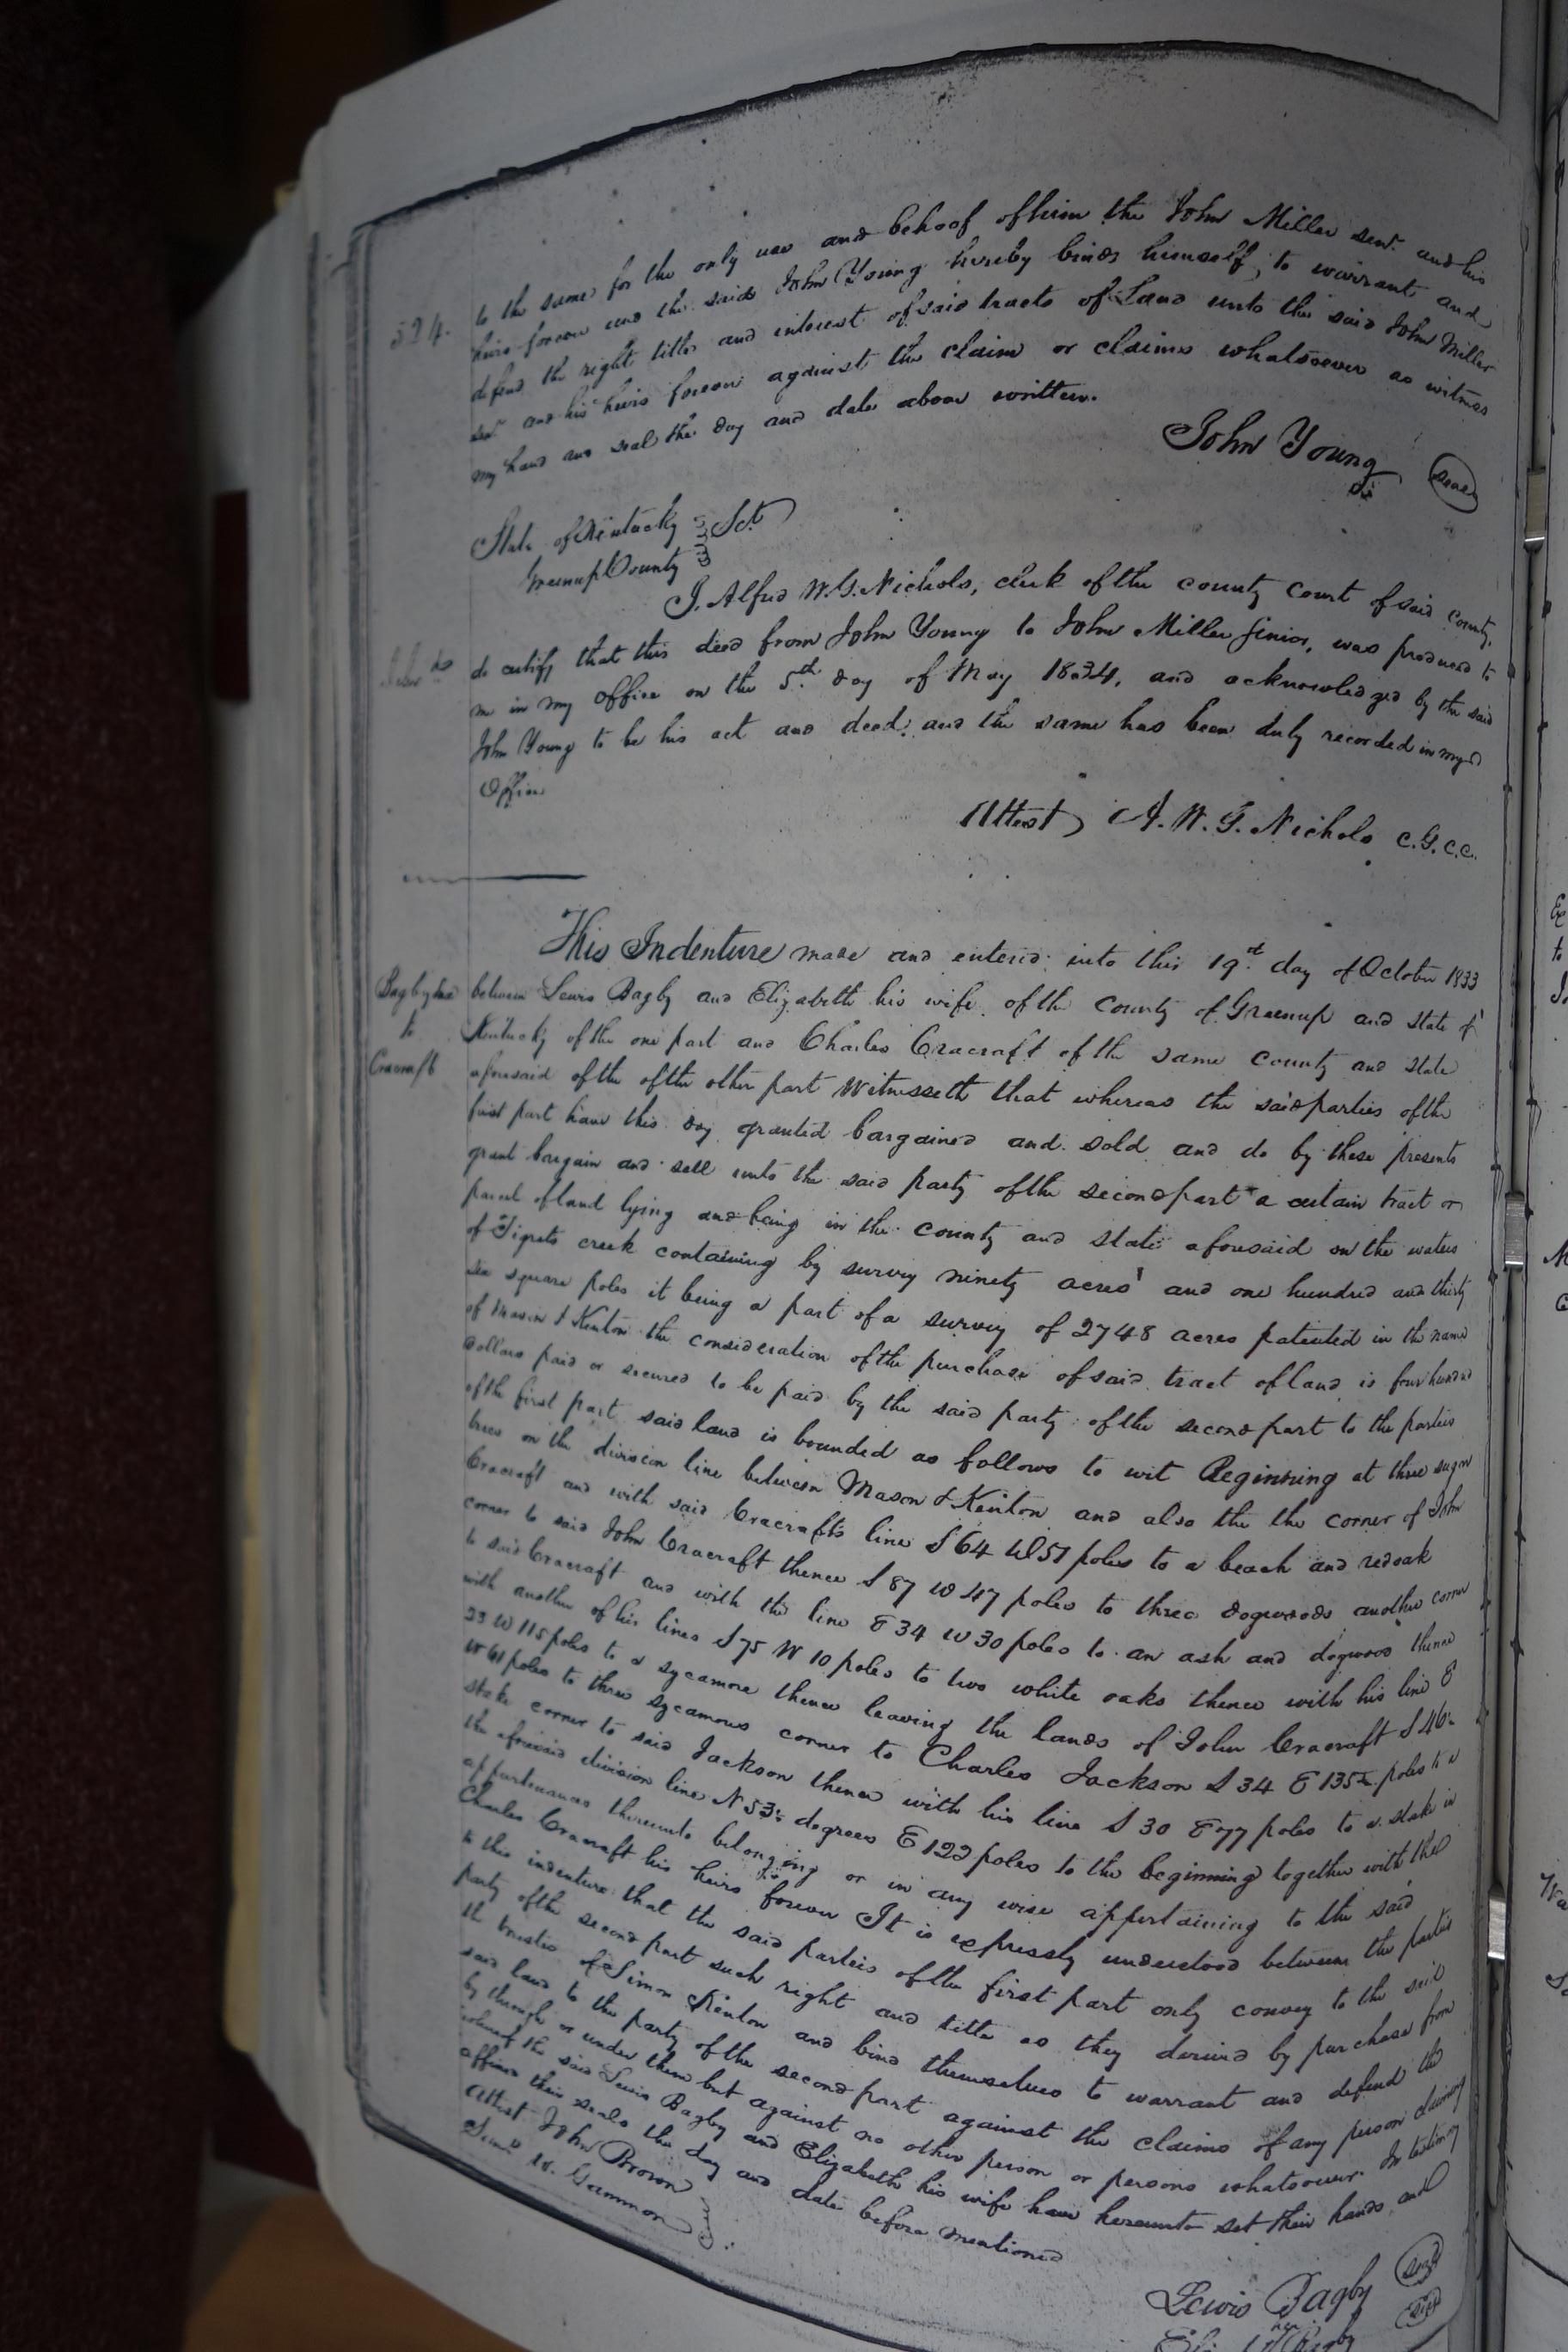 524.
to the same for the only use and behoof of him the John Miller senr. and his
heirs forever and the said John Young hereby binds himself, to warrant and
defend the right title and interest of said tracts of Land unto the said John Miller
senr. and his heirs forever against the claim or claims whatsoever as witness
my hand and seal the day and date above written.
John Young
State of Kentucky Sct
Greenup County
I, Alfred W. G. Nichols, clerk of the county court of said county,
do certify that this deed from John Young to John Miller sinior, was produced to
me in my office on the 5th day of May 1834, and acknowledged by the said
John Young to be his act and deed, and the same has been duly recorded in my
Office
Attest, A. W. G. Nichols C.G.C.C.
This Indenture made and entered into this 19 day of October 1833
Bagby
to
Cracraft
between Lewis Bagby and Elizabeth his wife of the county of Greenup and state of
Kentucky of the one part and Charles Cracraft of the same county and state
aforesaid of the of the other part Witnesseth that whereas the said parties of the
first part have this day granted bargained and sold and do by these presents
grant bargain and sell unto the said party of the second part a certain tract or
parcel of land lying and being in the county and state aforesaid on the waters
of Tigrets creek containing by survey ninety acres and one hundred and thirty
six square poles it being a part of a survey of 2748 acres patented in the name
of Mason & Kenton the consideration of the purchase of said tract of land is four hundred
Dollars paid or secured to be paid by the said party of the second part to the parties
of the first part said land is bounded as follows to wit Beginning at three sugar
trees on the division line between Mason & Kenton and also the the corner of John
Cracraft and with said Cracrafts line S 64 W 57 poles to a beach and redoak
corner to said John Cracraft thence S 87 W 47 poles to three dogwoods another corner
to said Cracraft and with the line S 34 W 30 poles to an ash and dogwood thence
with another of his lines S 75 W 10 poles to two white oaks thence with his line S
23 W 115 poles to a sycamore thence leaving the lands of John Cracraft S 46
W 61 poles to three sycamores corner to Charles Jackson S 34 E 135 poles to a
stake corner to said Jackson thence with his line S 30 E 77 poles to a stake in
the aforesaid division line N 53 degrees E 122 poles to the beginning together with the
appurtenances thereunto belonging or in any wise appertaining to the said
Charles Cracraft his heirs forever It is expressly understood between the parties
to this indenture that the said parties of the first part only convey to the said
party of the second part such right and title as they derived by purchase from
the trustees of Simon Kenton and bind themselves to warrant and defend the
said land to the party of the second part against the claims of any person claiming
by through or under them but against no other person or persons whatsoever. In testimony
whereof the said Lewis Bagby and Elizabeth his wife have hereunto set their hands and
affixed their seals the day and date before mentioned
Attest John Brown
Saml. W. Gammon
Lewis Bagby seal
Bagby seal